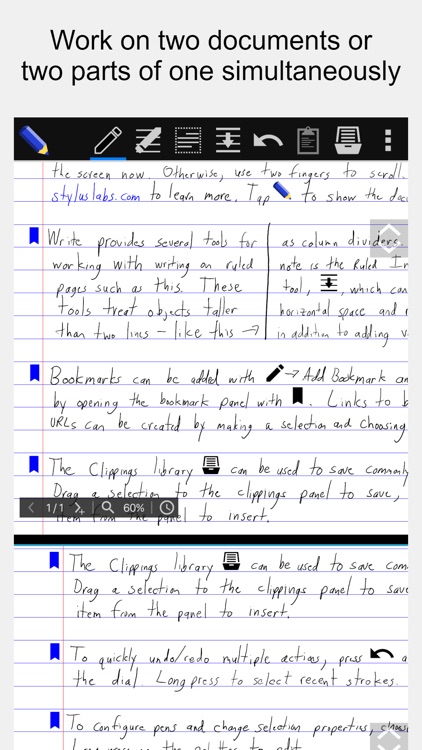 Work on two documents or
two parts of one simultaneously
the screen now. Otherwise, use two fingers to scroll.
styluslabs.com to learn more. Tap to show the
Write provides several tools for
working with writing on ruled
pages such as this. These
tools treat objects taller
than two lines - like this →
as column dividers.
note is the Ruled
tool, , which can
horizontal space and
in addition to adding
Bookmarks can be added with → Add Bookmark
by opening the bookmark panel with . Links to
URLs can be created by making a selection and choosing
The Clippings library can be used to save commonly
Drag a selection to the clippings panel to save,
item from the panel to insert.
1/1 60%
The Clippings library can be used to save
Drag a selection to the clippings panel to save
item from the panel to insert.
To quickly undo/redo multiple actions, press
the dial. Long press to select recent strokes.
To configure pens and change selection properties,